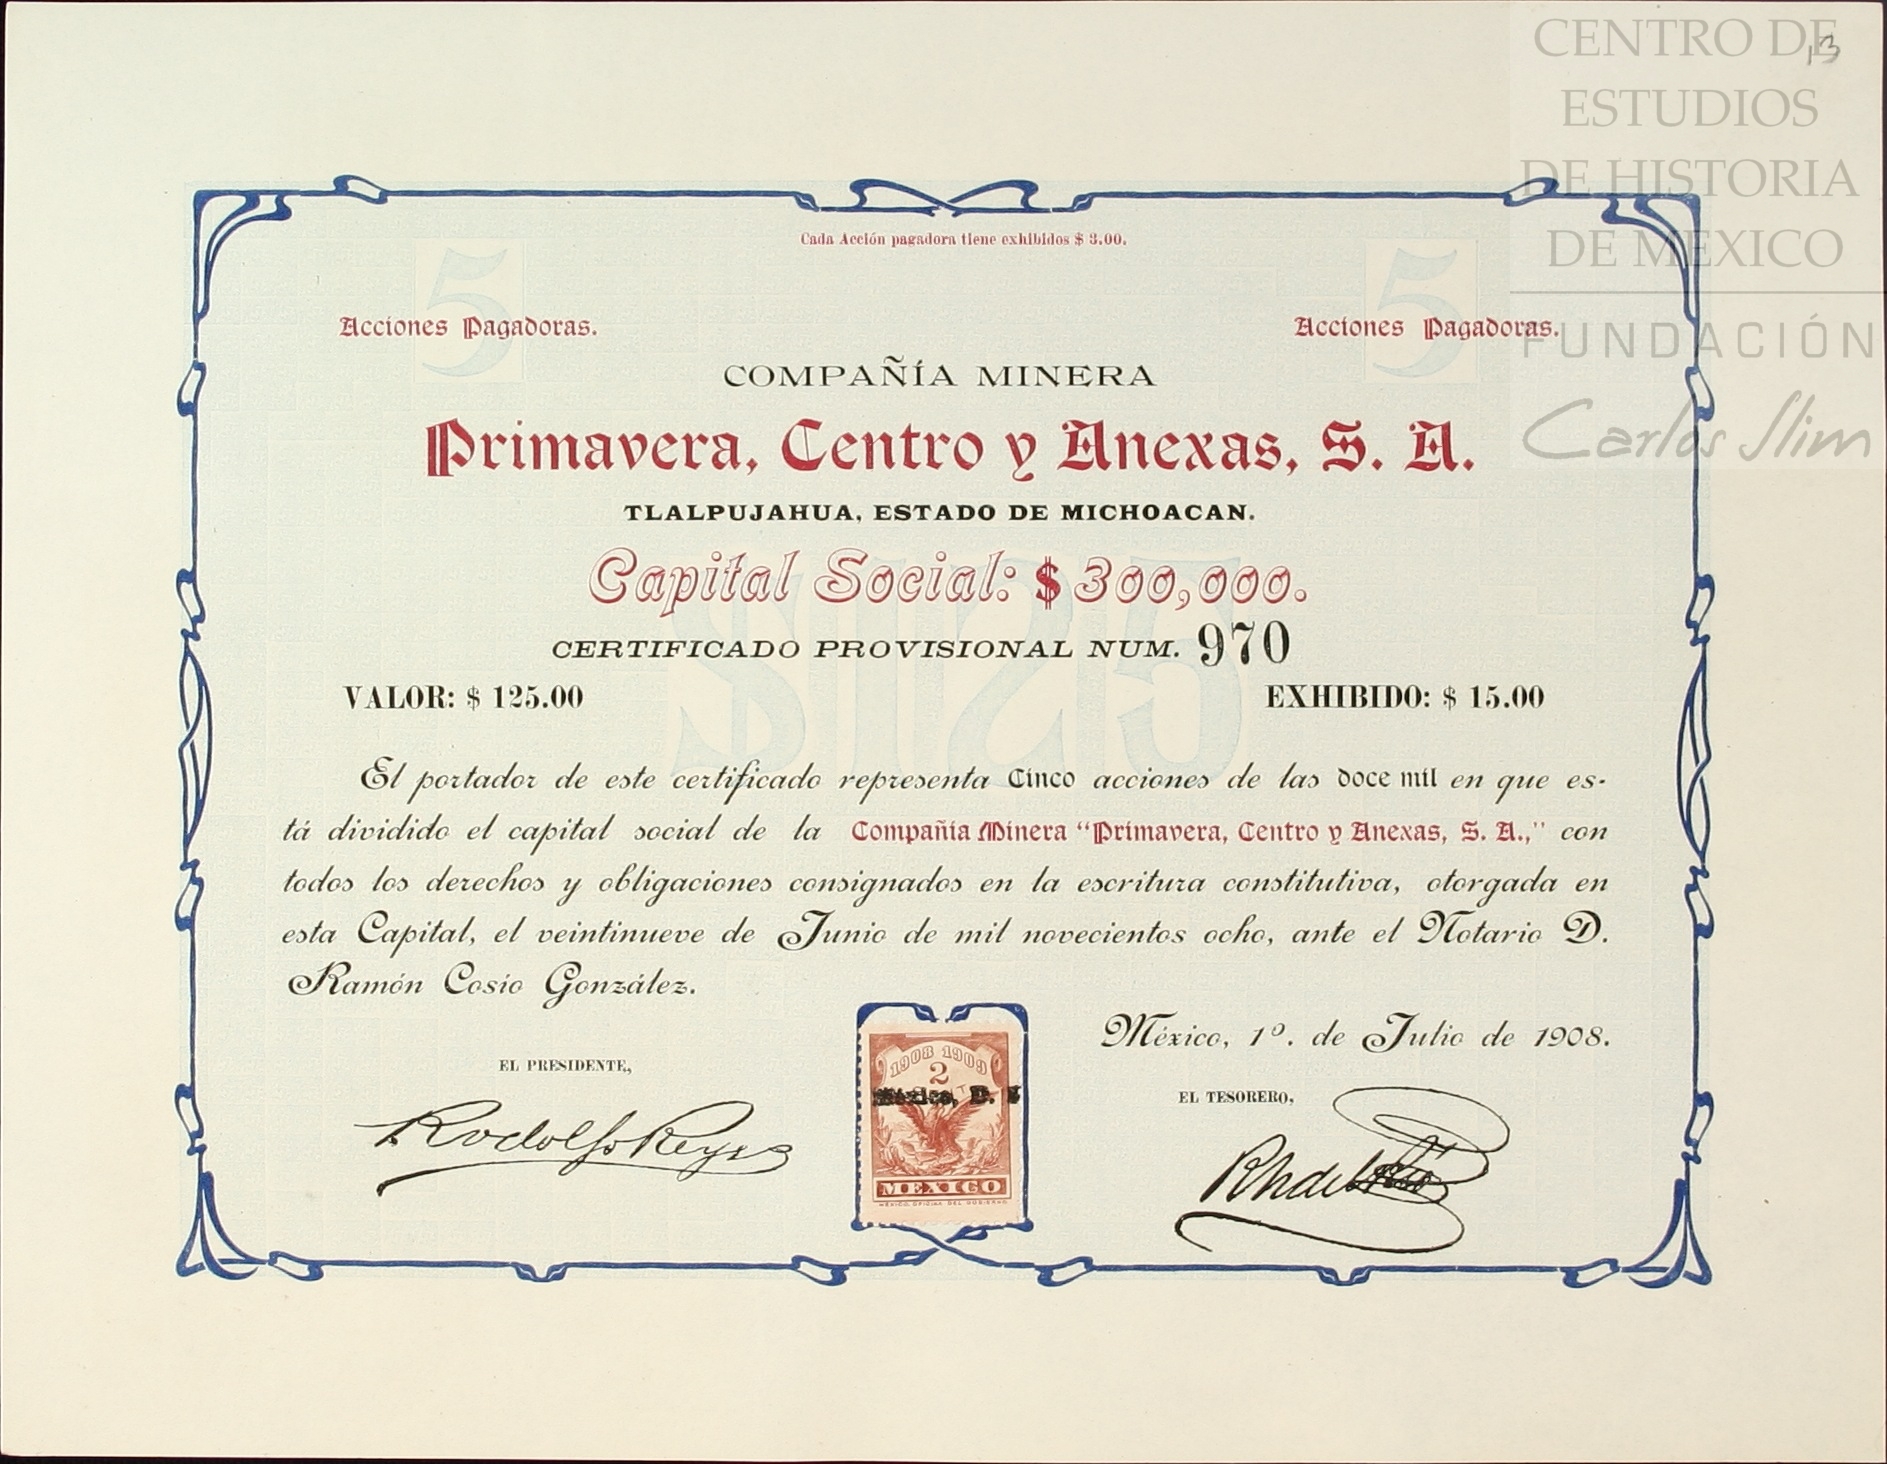 CENTRO DE
ESTUDIOS
DE HISTORIA
DE MEXICO
FUNDACIÓN
Carlos Slim
13
Cada Acción pagadora tiene exhibidos $ 3.00.
5
5
Acciones Pagadoras.
Acciones Pagadoras.
COMPAÑÍA MINERA
Primavera, Centro y Anexas, S. A.
TLALPUJAHUA, ESTADO DE MICHOACAN.
Capital Social: $ 300,000.
$125
CERTIFICADO PROVISIONAL NUM. 970
VALOR: $ 125.00
EXHIBIDO: $ 15.00
El portador de este certificado representa Cinco acciones de las doce mil en que es-
tá dividido el capital social de la Compañía Minera "Primavera, Centro y Anexas, S. A.," con
todos los derechos y obligaciones consignados en la escritura constitutiva, otorgada en
esta Capital, el veintinueve de Junio de mil novecientos ocho, ante el Notario D.
Ramón Cosío González.
México, 1º. de Julio de 1908.
EL PRESIDENTE,
Rodolfo Reyes
1908 1909
2
México, D.
MEXICO
MEXICO, OFICINA DEL GOBIERNO
EL TESORERO,